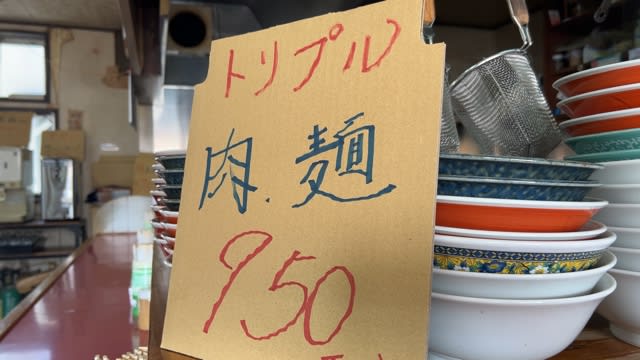 トリプル
肉、麺
950